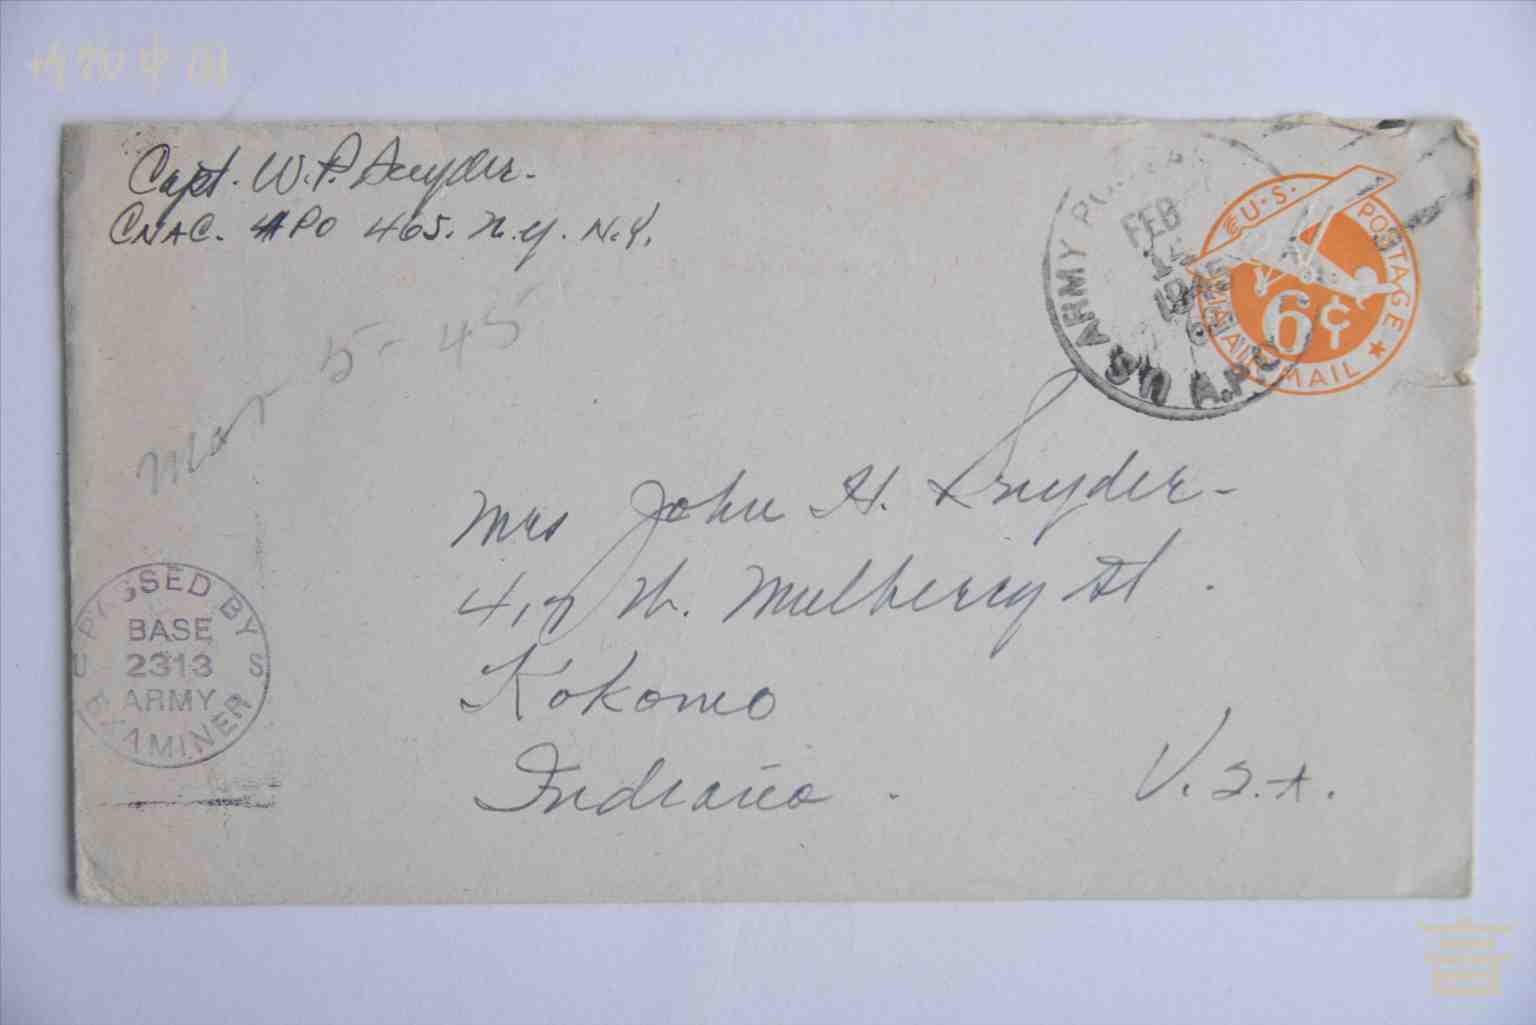 Capt. W. P. Snyder.
CNAC. APO 465. N.Y. N.Y.
Mar 5 - 45
ARMY
FEB
U.S. A.P.O.
U.S. POSTAGE
6¢
AIR MAIL
Mrs John H. Snyder
417 W. Mulberry St.
Kokomo
Indiana.
U.S.A.
PASSED BY
BASE
U 2313 S
ARMY
EXAMINER